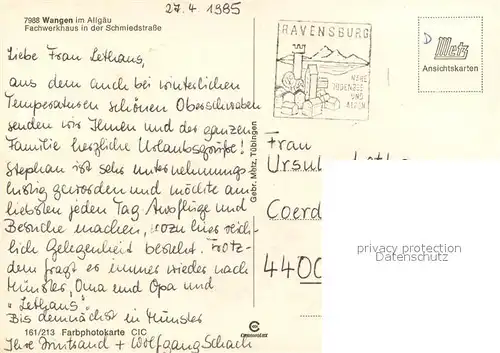 27.4.1985
7988 Wangen im Allgäu
Fachwerkhaus in der Schmiedstraße
Liebe Frau Lethaus,
aus dem auch bei winterlichen
Temperaturen schönen Oberschwaben
senden wir Ihnen und der ganzen
Familie herzliche Urlaubsgrüße!
Stephan ist sehr unternehmungs-
lustig geworden und möchte am
liebsten jeden Tag Ausflüge und
Besuche machen, wozu hier reich-
lich Gelegenheit besteht. Trotz-
dem fragt er immer wieder nach
Münster, Oma und Opa und
"Lethaus".
Bis demnächst in Münster
161/213 Farbphotokarte CIC
Ihre + Wolfgang Schach
Gebr. Metz, Tübingen
RAVENSBURG
NÄHE
BODENSEE
UND
ALPEN
D
Metz
Ansichtskarten
Frau
Coerd
4400
privacy protection
Datenschutz